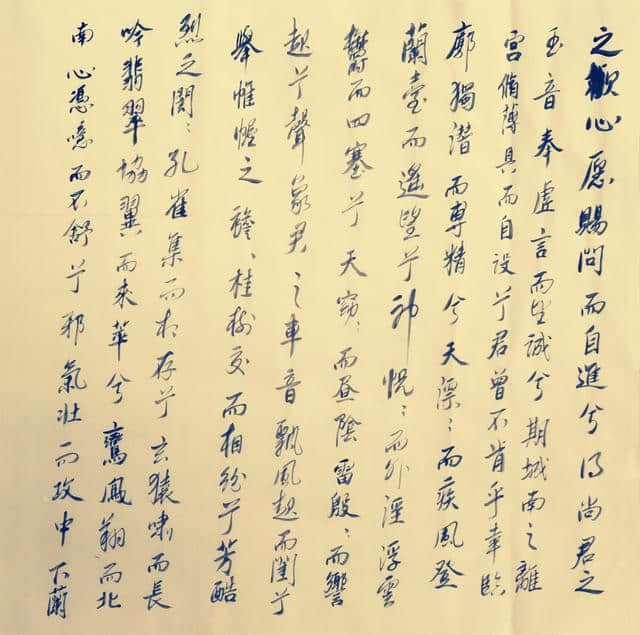 之歡心愿賜問而自進兮得尚君之
玉音奉虛言而望誠兮期城南之離
宮脩薄具而自設兮君曾不肯乎幸臨
廓獨潛而專精兮天漂〻而疾風登
蘭臺而遙望兮神怳〻而外淫浮雲
鬱而四塞兮天窈〻而晝陰雷殷〻而響
起兮聲象君之車音飄風起而閨兮
舉帷幄之襜〻桂樹交而相紛兮芳酷
烈之誾〻孔雀集而相存兮玄猿嘯而長
吟翡翠協翼而來萃兮鸞鳳翔而北
南心憑噫而不舒兮邪氣壯而攻中下蘭